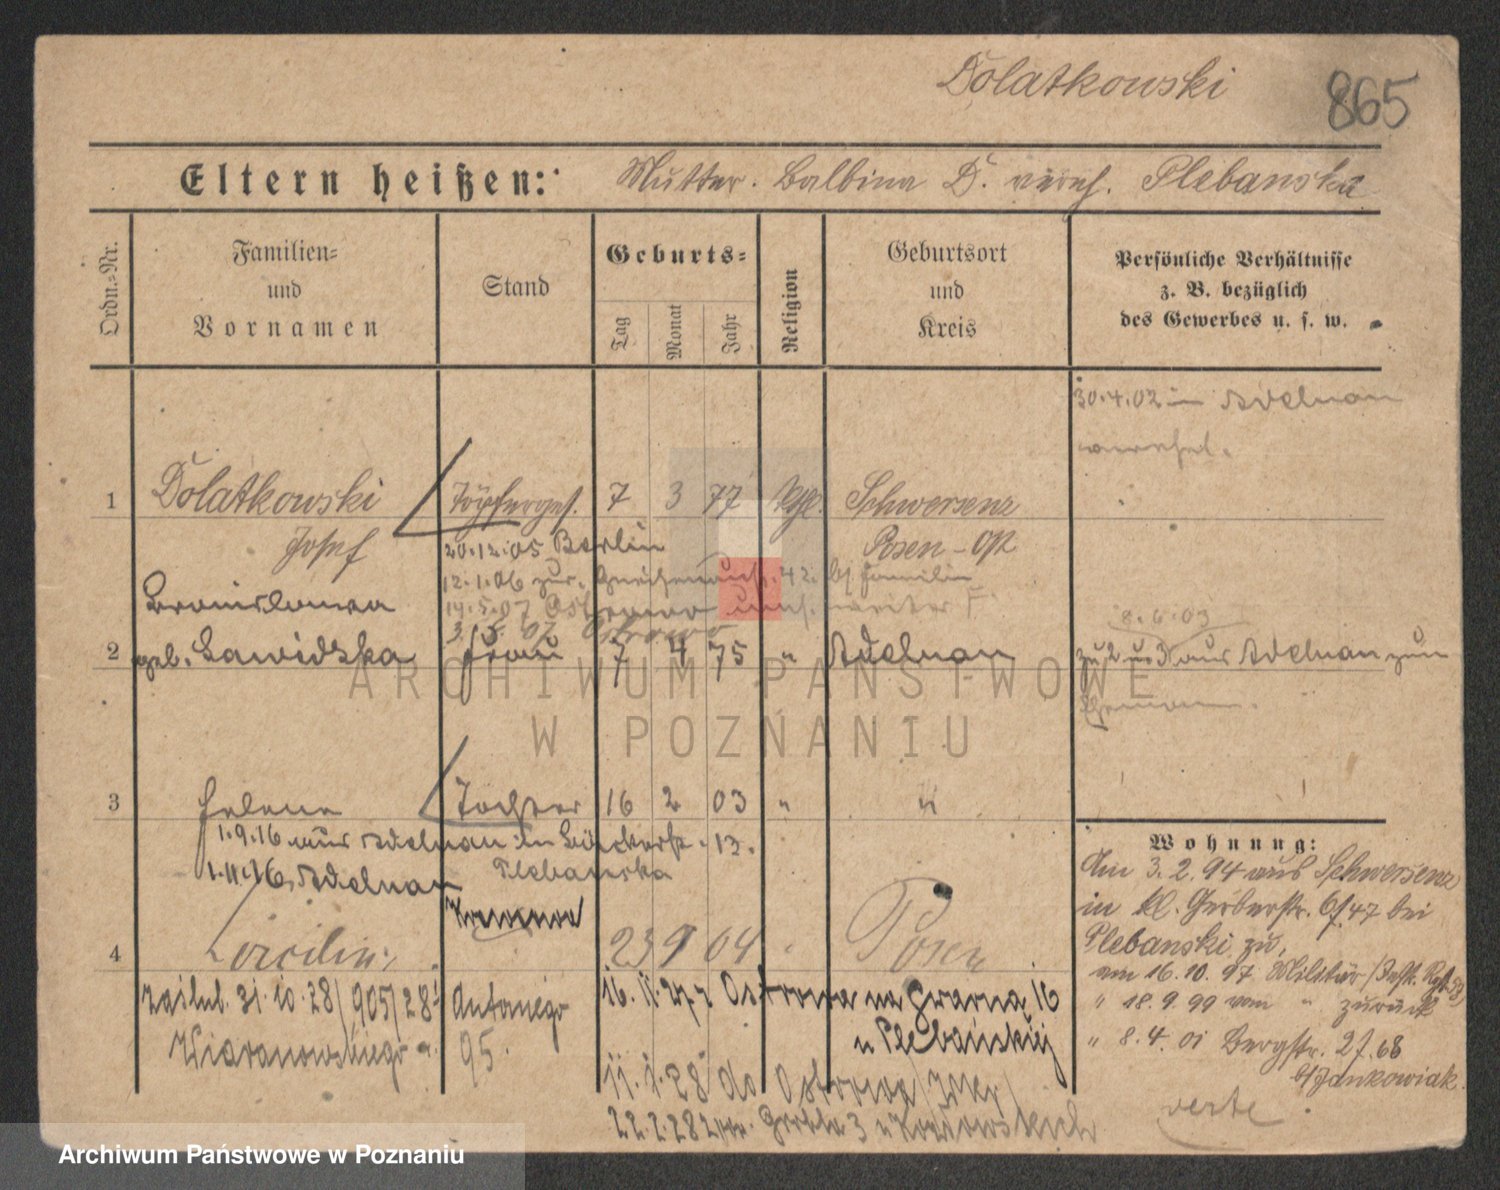 Dolatkowski
865
Eltern heißen: Mutter. Balbina D. verh. Plebanska
Ordn.-Nr.
Familien-
und
Vornamen
Stand
Geburts-
Tag
Monat
Jahr
Religion
Geburtsort
und
Kreis
Persönliche Verhältnisse
z. B. bezüglich
des Gewerbes u. s. w.
30.4.02 in Adelnau
verehel.
1 Dolatkowski Töpferges. 7 3 77 kath. Schwersenz
Josef Posen-Ost
20.12.05 Berlin
12.1.06 zur. 42. b/ Familie
14.5.07 weiter F
3. 07 Ostrowo
8.6.03
Bronislawa
2 geb. Zawidzka Frau 7 4 75 " Adelnau zu 2 u. 3 aus Adelnau zum
Ehemann.
3 Helene Tochter 16 2 03 " "
1.9.16 aus Adelnau in 13.
1.11.16 Adelnau Plebanska
4 Cäcilie 23 9 04 " Posen
31.10.28/905/28 Antoniego 16. 11. 27 z Ostrowa na 16
u Plebańskiej
95.
11.1.28 do Ostrowa
22.2.28 Grobla 3 u
Wohnung:
Am 3.2.94 aus Schwersenz
in kl. Gerberstr. 6/47 bei
Plebanski zu,
am 16.10.97 Militär
" 18.9.99 von " zurück
" 8.4.01 Bergstr. 27.68
b/ Jankowiak.
verte
ARCHIWUM PAŃSTWOWE
W POZNANIU
Archiwum Państwowe w Poznaniu